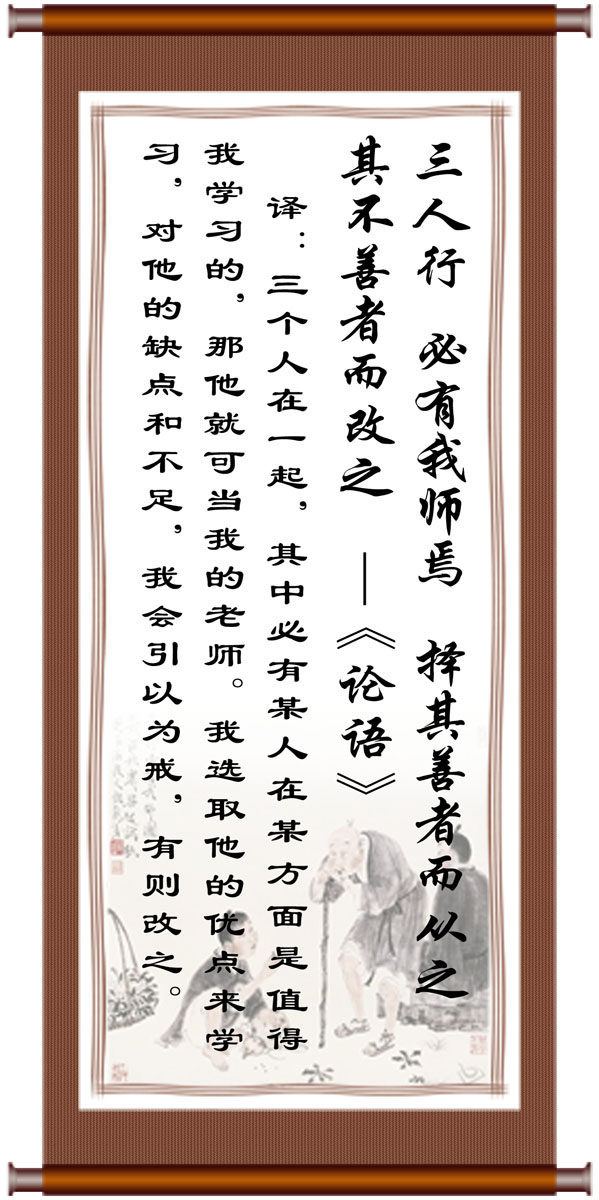 三人行 必有我师焉 择其善者而从之
其不善者而改之 —《论语》
译：三个人在一起，其中必有某人在某方面是值得
我学习的，那他就可当我的老师。我选取他的优点来学
习，对他的缺点和不足，我会引以为戒，有则改之。